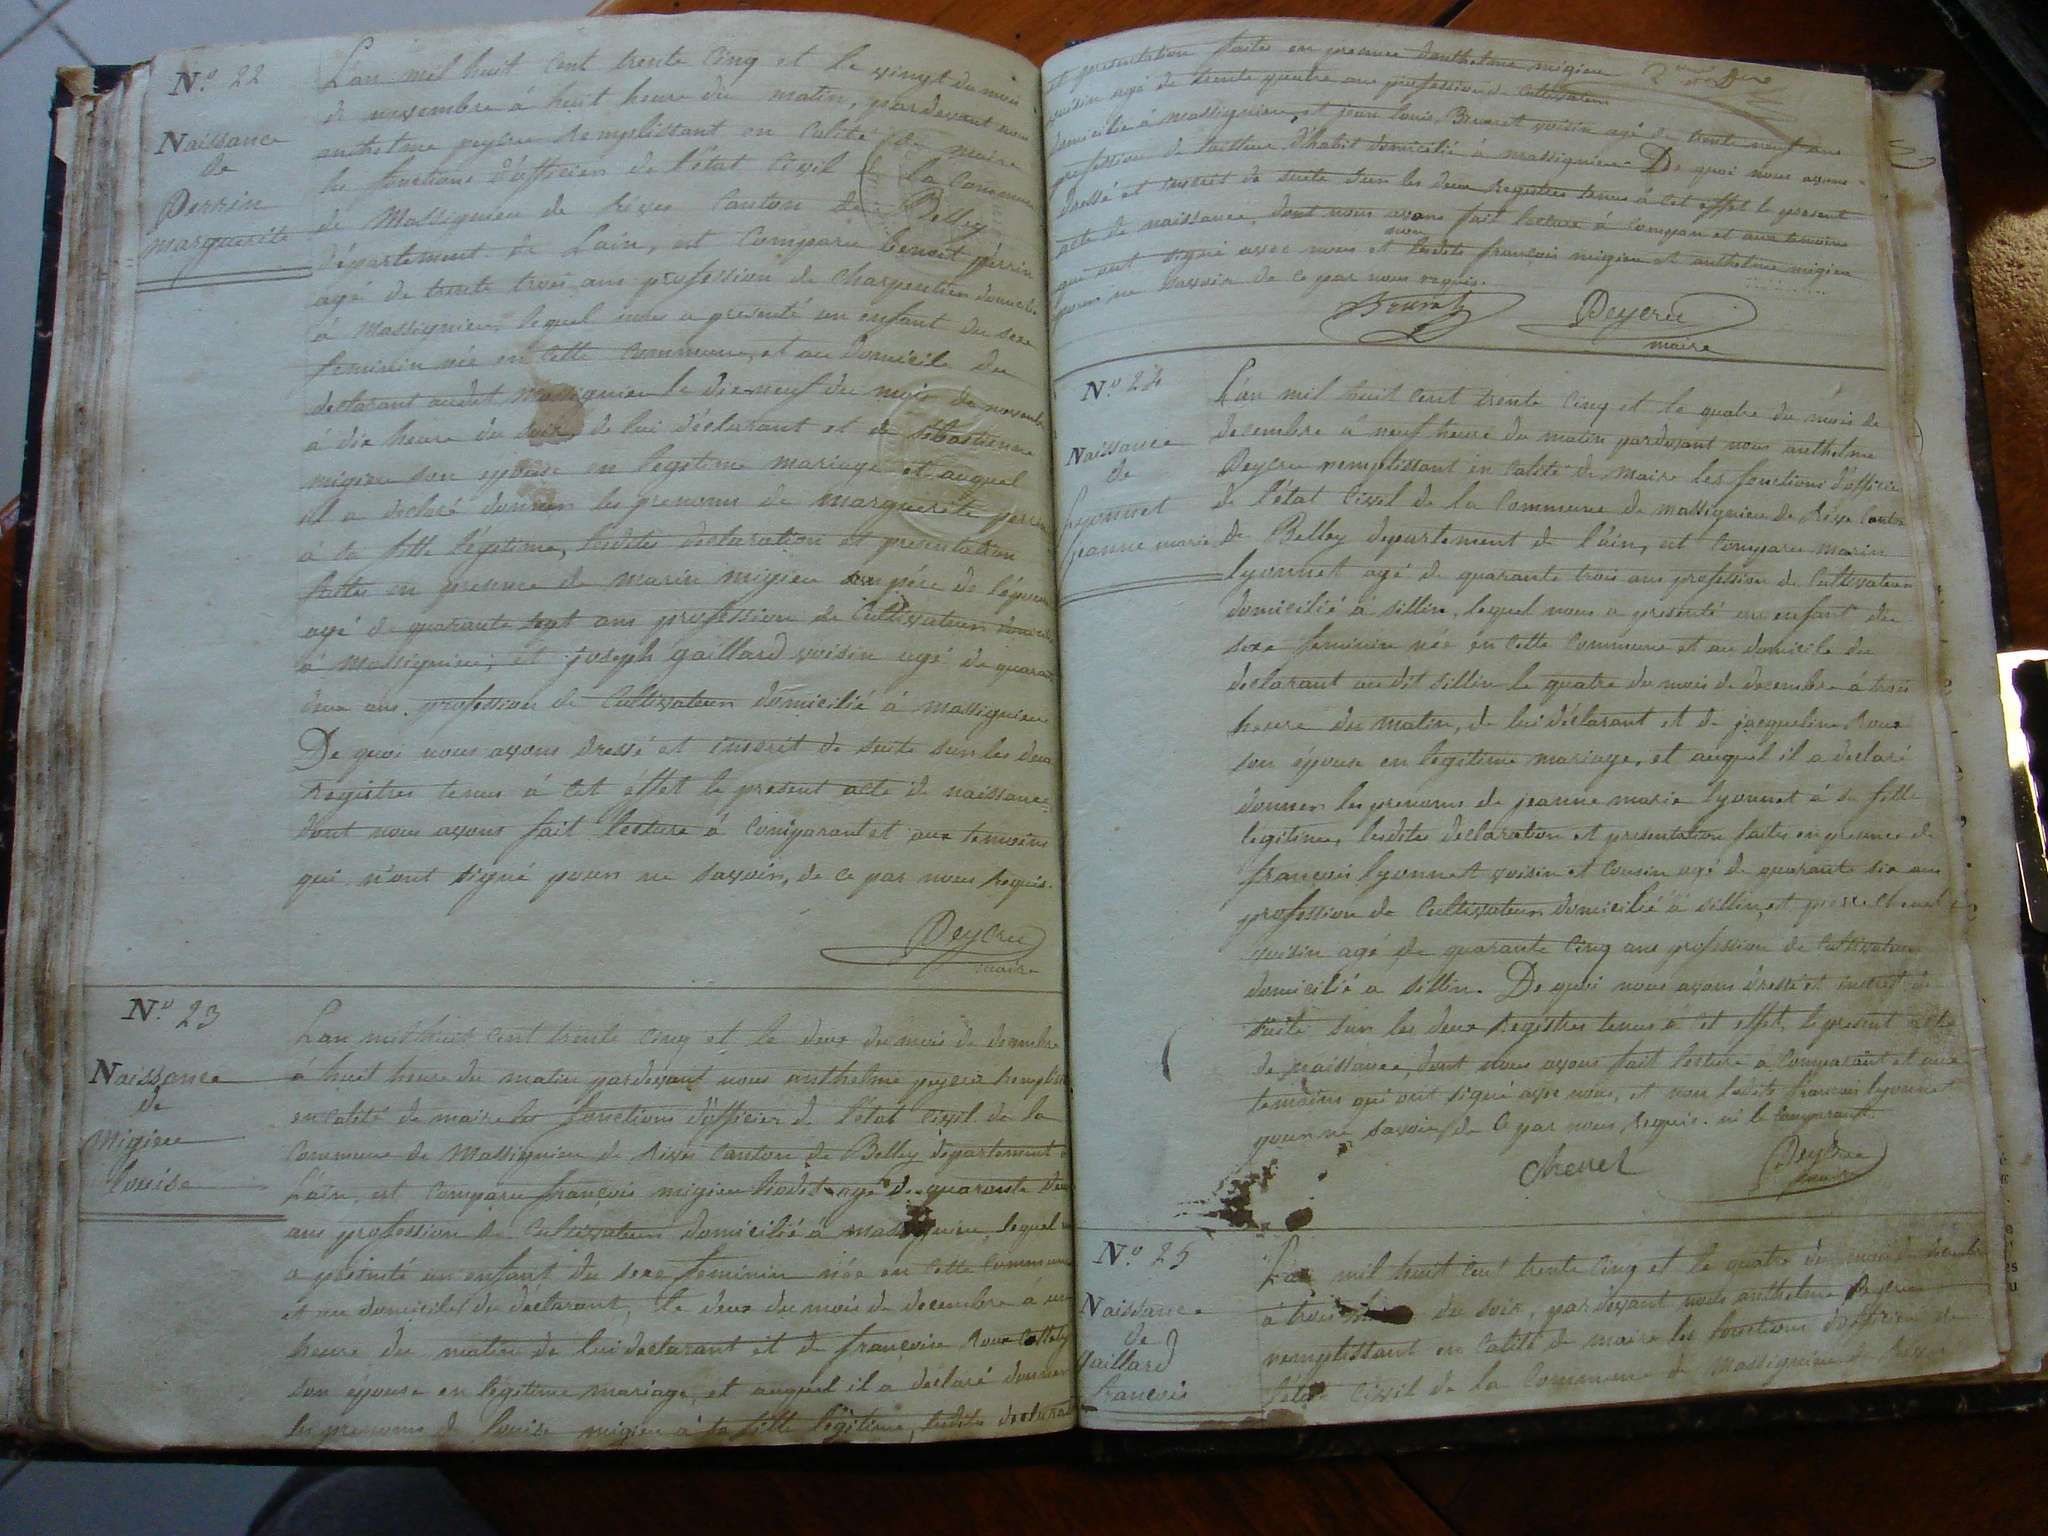 N.o 22
Naissance
de
Perrin
marguerite
L'an mil huit cent trente cinq et le vingt du mois
de novembre à huit heure du matin, pardevant nous
anthelme peycru remplissant en calité de maire
les fonctions d'officier de l'état civil de la commune
de Massignieu de rives canton de Belley
département de Lain, est comparu benoit perrin
agé de trente trois ans profession de charpentier domicilié
à massignieu, lequel nous a presenté un enfant du sexe
feminin née en cette commune, et au domicile du
declarant audit Massignieu le dix neuf du mois de novembre
à dix heure du soir, de lui déclarant et de sébastienne
migieu son épouse en legitime mariage et auquel
il a déclaré donner les prenoms de marguerite perrin
à sa fille légitime, lesdites declaration et presentation
faites en presence de marin migieu père de l'épouse
agé de quarante sept ans profession de cultivateur domicilié
à massignieu, et joseph gaillard voisin agé de quarante
deux ans profession de cultivateur domicilié à massignieu
De quoi nous avons dressé et inscrit de suite sur les deux
registres tenus à cet éffet le present acte de naissance
dont nous avons fait lecture à comparant et aux temoins
qui n'ont signé pour ne savoir, de ce par nous requis.
Peycru
maire
N.o 23
Naissance
de
Migieu
louise
L'an mil huit cent trente cinq et le deux du mois de decembre
à huit heure du matin pardevant nous anthelme peycru remplissant
en calité de maire les fonctions d'officier de l'état civil de la
commune de Massignieu de rives canton de Belley département de
Lain, est comparu françois migieu agé de quarante deux
ans profession de cultivateur domicilié à massignieu, lequel nous
a presenté un enfant du sexe feminin née en cette commune
et au domicile du déclarant, le deux du mois de decembre à une
heure du matin de lui declarant et de françoise Roux
son épouse en légitime mariage, et auquel il a déclaré donner
les prenoms de louise migieu à sa fille légitime, lesdites declaration
et presentation faites en presence d'anthelme migieu
voisin agé de trente quatre ans profession de cultivateur
domicilié à massignieu, et jean louis Brunet voisin agé de trente neuf ans
profession de tailleur d'habit domicilié à massignieu. De quoi nous avons
dressé et inscrit de suite sur les deux registres tenus à cet effet le present
acte de naissance, dont nous avons fait lecture à comparant et aux temoins
qui ont signé avec nous et non lesdits françois migieu et anthelme migieu
pour ne savoir de ce par nous requis.
Brunet Peycru
maire
N.o 24
Naissance
de
Lyonnet
jeanne marie
L'an mil huit cent trente cinq et le quatre du mois de
decembre à neuf heure du matin pardevant nous anthelme
Peycru remplissant en calité de maire les fonctions d'officier
de l'état civil de la commune de massignieu de Rives canton
de Belley departement de l'ain, est comparu marin
lyonnet agé de quarante trois ans profession de cultivateur
domicilié à sillin, lequel nous a presenté un enfant du
sexe feminin née en cette commune et au domicile du
declarant audit sillin le quatre du mois de decembre à trois
heure du matin, de lui déclarant et de jacqueline Roux
son épouse en legitime mariage, et auquel il a declaré
donner les prenoms de jeanne marie lyonnet à sa fille
legitime, lesdites declaration et presentation faites en presence de
françois lyonnet voisin et cousin agé de quarante six ans
profession de cultivateur domicilié à sillin, et pierre chevel
voisin agé de quarante cinq ans profession de cultivateur
domicilié a sillin. De quoi nous avons dressé et inscrit de
suite sur les deux registres tenus à cet effet le present acte
de naissance, dont nous avons fait lecture a comparant et aux
temoins qui ont signé avec nous, et non ledit françois lyonnet
pour ne savoir, de ce par nous requis. ni le comparant
chevel Peycru
maire
N.o 25
Naissance
de
Gaillard
françois
L'an mil huit cent trente cinq et le quatre du mois de decembre
à trois du soir, pardevant nous anthelme Peycru
remplissant en calité de maire les fonctions d'officier de
l'état civil de la commune de Massignieu de Rives